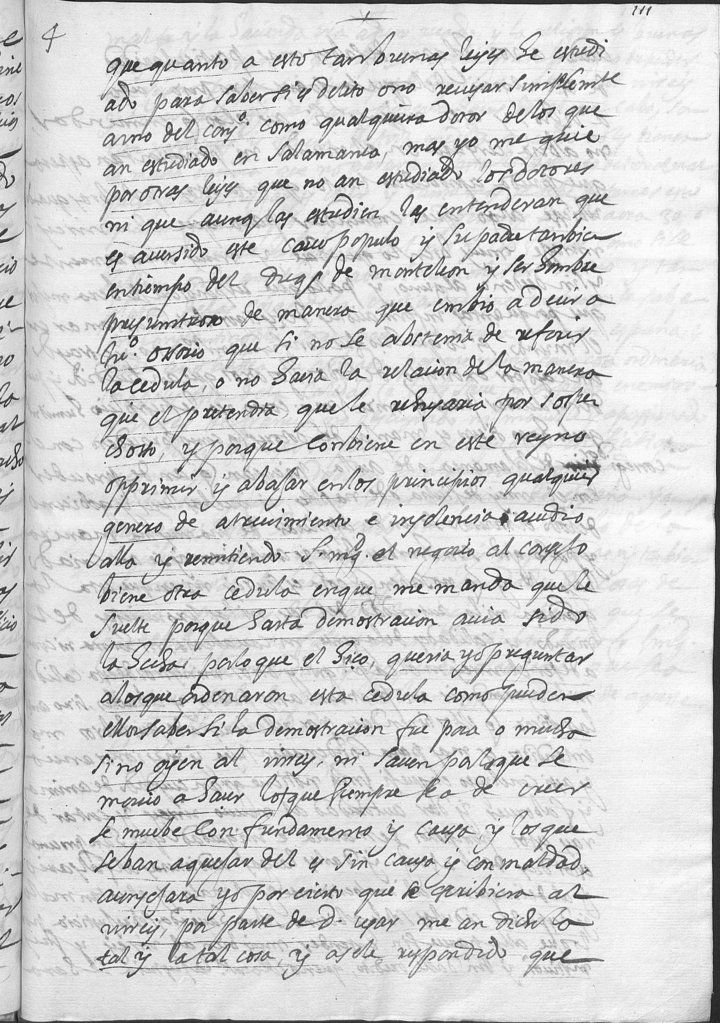 111
4
que quanto a esto tan buenas leyes he estudi
ado para saber si es delito o no reusar simplemte
a uno del consº. como qualquiera dotor de los que
an estudiado en salamanca, mas yo me guie
por otras leyes que no an estudiado los dotores
ni que aunq las estudien las entenderan que
es aver sido este cavo populo y su padre tanbien
en tiempo del duqe de monteleon y ser honbre
presuntuoso de manera que enbio a decir a
osorio que si no se abstenia de referir
la cedula, o no hacia la relacion de la manera
que el pretendia que le reusaria por sospe
choso, y porque conbiene en este reyno
opprimir y abajar en los principios qualquier
genero de atrevimiento e insolencia acudio
alla y remitiendo S. mgd. el negocio al consejo
biene otra cedula en que me manda que le
suelte porque harta demostracion avia sido
la hecha, para lo que el hiço, queria yo preguntar
a los que ordenaron esta cedula como pueden
ellos saber si la demostracion fue poca o mucha
si no oyen al virrey, ni saven para lo que se
movio a hacer los que siempre se a de creer
se muebe con fundamento y causa y los que
se ban a quejar del es sin causa y con maldad,
yo por cierto que se escribiera al
virrey, por parte de d. me an dicho la
tal y la tal cosa, y asele respondido que